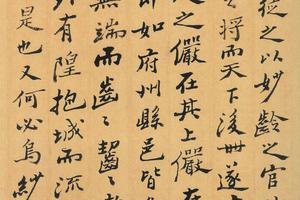 之以妙齡之官
將而天下後世遂
之儼在其上儼在
即如府州縣邑皆
無端而齒々齧々
有隍抱城而流
是也又何必烏紗